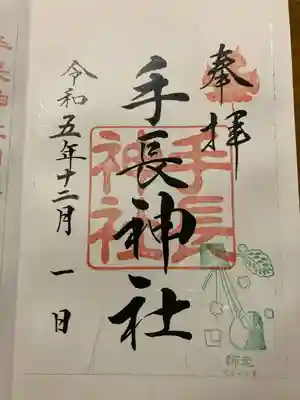 奉拝
手長神社
手長
神社
令和五年十二月 一日
師走